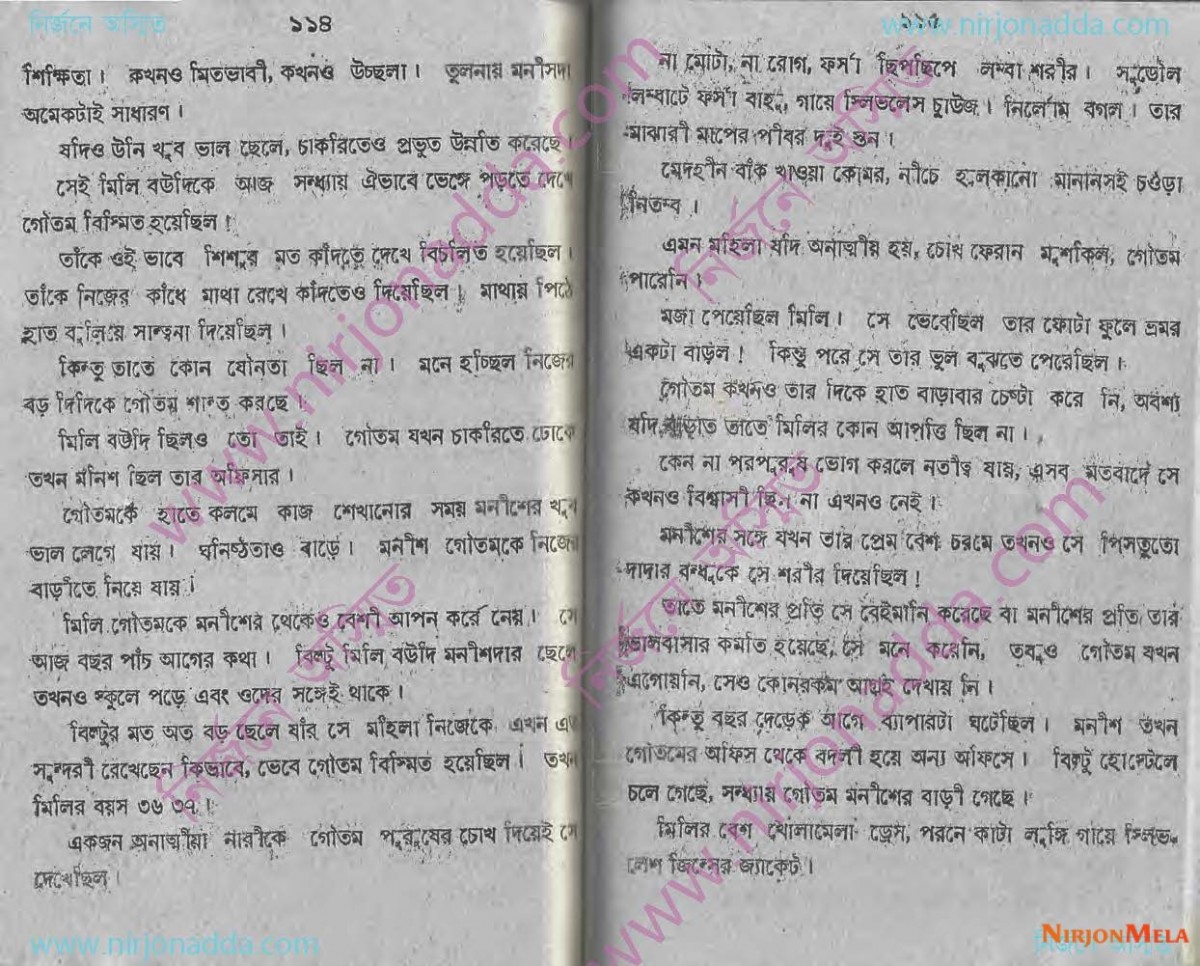 নির্জনে অসিত
১১৪
শিক্ষিতা। কখনও মিতভাষী, কখনও উচ্ছলা। তুলনায় মনীসদা
অমেকটাই সাধারণ।
যদিও উনি খুব ভাল ছেলে, চাকরিতেও প্রভূত উন্নতি করেছে।
সেই মিলি বউদিকে আজ সন্ধ্যায় ঐভাবে ভেঙ্গে পড়তে দেখে
গৌতম বিস্মিত হয়েছিল!
তাঁকে ওই ভাবে শিশুর মত কাঁদতে দেখে বিচলিত হয়েছিল।
তাঁকে নিজের কাঁধে মাথা রেখে কাঁদতেও দিয়েছিল। মাথায় পিঠে
হাত বুলিয়ে সান্ত্বনা দিয়েছিল।
কিন্তু তাতে কোন যৌনতা ছিল না। মনে হচ্ছিল নিজের
বড় দিদিকে গৌতম শান্ত করছে।
মিলি বউদি ছিলও তো তাই। গৌতম যখন চাকরিতে ঢোকে
তখন মনিশ ছিল তার অফিসার।
গৌতমকে হাতে কলমে কাজ শেখানোর সময় মনীশের খুব
ভাল লেগে যায়। ঘনিষ্ঠতাও বাড়ে। মনীশ গৌতমকে নিজের
বাড়ীতে নিয়ে যায়।
মিলি গৌতমকে মনীশের থেকেও বেশী আপন করে নেয়। সে
আজ বছর পাঁচ আগের কথা। বিল্টু মিলি বউদি মনীশদার ছেলে
তখনও স্কুলে পড়ে এবং ওদের সঙ্গেই থাকে।
বিল্টুর মত অত বড় ছেলে যাঁর সে মহিলা নিজেকে এখন এত
সুন্দরী রেখেছেন কিভাবে, ভেবে গৌতম বিস্মিত হয়েছিল। তখন
মিলির বয়স ৩৬ ৩৭।
একজন অনাত্মীয়া নারীকে গৌতম পুরুষের চোখ দিয়েই সে
দেখেছিল।
www.nirjonadda.com
www.nirjonadda.com
না মোটা, না রোগ, ফর্সা ছিপছিপে লম্বা শরীর। সুডৌল
লম্বাটে ফর্সা বাহু, গায়ে স্লিভলেস চুাউজ। নির্লোম বগল। তার
মাঝারী মাপের পীবর দুই স্তন।
মেদহীন বাঁক খাওয়া কোমর, নীচে হালকানো মাননসই চওড়া
নিতম্ব।
এমন মহিলা যদি অনাত্মীয় হয়, চোখ ফেরান মুশকিল, গৌতম
পারেনি।
মজা পেয়েছিল মিলি। সে ভেবেছিল তার ফোটা ফুলে ভ্রমর
একটা বাড়ল! কিন্তু পরে সে তার ভুল বুঝতে পেরেছিল।
গৌতম কখনও তার দিকে হাত বাড়াবার চেষ্টা করে নি, অবশ্য
যদি বাড়াত তাতে মিলির কোন আপত্তি ছিল না।
কেন না পরপুরুষ ভোগ করলে নতীত্ব যায়, এসব মতবাদে সে
কখনও বিশ্বাসী ছিল না এখনও নেই।
মনীশের সঙ্গে যখন তার প্রেম বেশ চরমে তখনও সে পিসতুতো
দাদার বন্ধুকে সে শরীর দিয়েছিল!
তাতে মনীশের প্রতি সে বেইমানি করেছে বা মনীশের প্রতি তার
ভালবাসার কমতি হয়েছে, সে মনে করেনি, তবুও গৌতম যখন
এগোয়নি, সেও কোনরকম আগ্রহ দেখায় নি।
কিন্তু বছর দেড়েক আগে ব্যাপারটা ঘটেছিল। মনীশ তখন
গৌতমের অফিস থেকে বদলী হয়ে অন্য অফিসে। বিল্টু হোস্টেলে
চলে গেছে, সন্ধ্যায় গৌতম মনীশের বাড়ী গেছে।
মিলির বেশ খোলামেলা ড্রেস, পরনে কাটা লুঙ্গি গায়ে স্লিভ-
লেশ জিন্সের জ্যাকেট।
www.nirjonadda.com
নির্জনে অসিত
www.nirjonadda.com
নির্জনে অসিত
নির্জনে অসিত
www.nirjonadda.com
NIRJONMELA